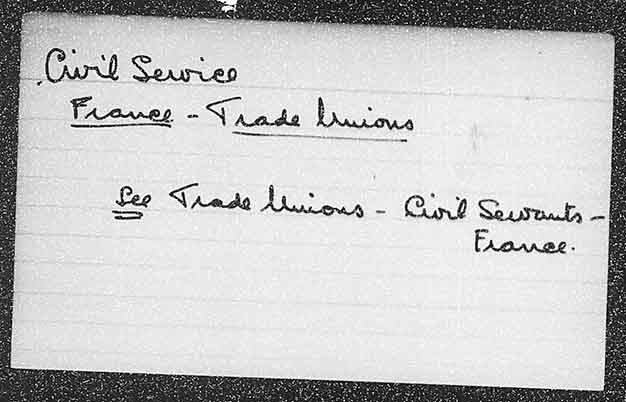 Civil Service
France - Trade Unions
See Trade Unions - Civil Servants -
France.